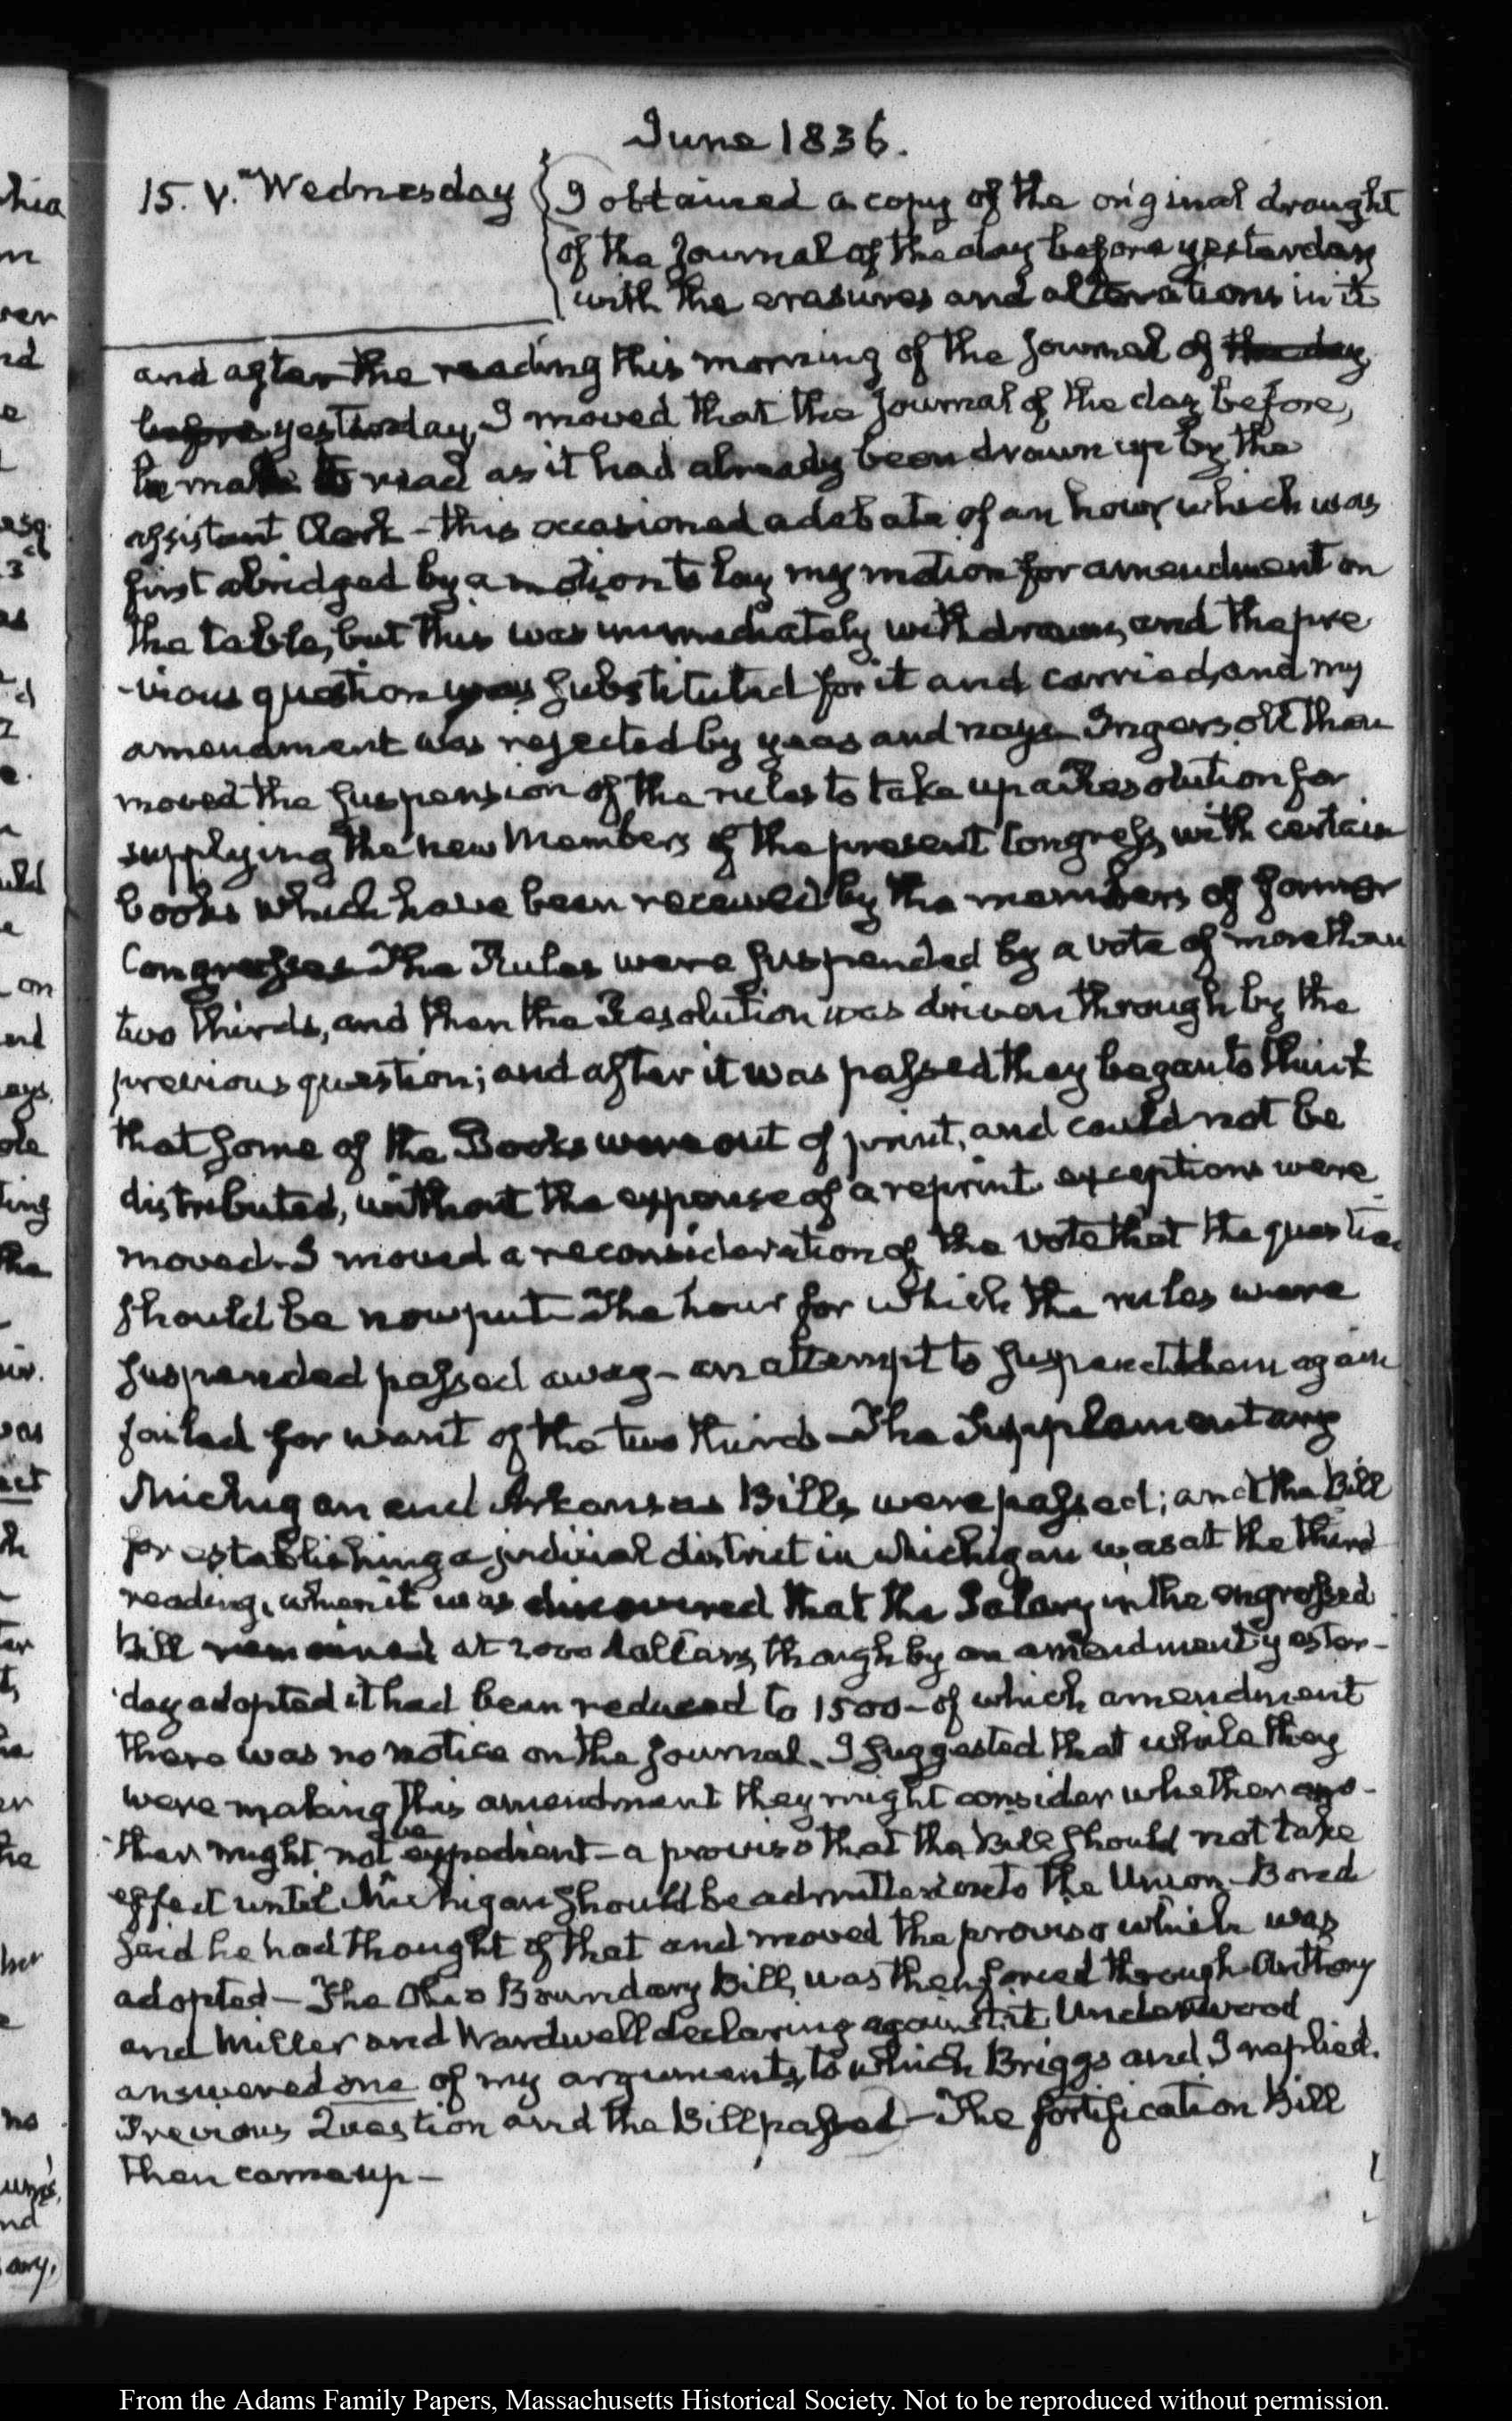 June 1836.
15. V. Wednesday
I obtained a copy of the original draught
of the Journal of the day before yesterday
with the erasures and alterations in it
and after the reading this morning of the Journal of the day
before yesterday, I moved that the Journal of the day before,
be made to read as it had already been drawn up by the
assistant Clerk - this occasioned a debate of an hour, which was
first abridged by a motion to lay my motion for amendment on
the table, but this was immediately withdrawn, and the pre
-vious question was substituted for it and carried, and my
amendment was rejected by yeas and nays - Ingersoll then
moved the suspension of the rules to take up a Resolution for
supplying the new Members of the present Congress, with certain
books which have been received by the members of former
Congresses - The Rules were suspended by a vote of more than
two thirds, and then the Resolution was driven through by the
previous question; and after it was passed they began to think
that some of the Books were out of print, and could not be
distributed, without the expense of a reprint. exceptions were
moved - I moved a reconsideration of the vote that the question
should be now put - The hour for which the rules were
suspended passed away - an attempt to suspend them again
failed for want of the two thirds - The Supplementary
Michigan and Arkansas Bills were passed; and the Bill
for establishing a judicial district in Michigan was at the third
reading, when it was discovered that the Salary in the engrossed
Bill remained at 2000 dollars, though by an amendment yester-
day adopted it had been reduced to 1500 - of which amendment
there was no notice on the Journal. I suggested that while they
were making this amendment they might consider whether ano-
ther might not be expedient - a proviso that the Bill should not take
effect until Michigan should be admitted into the Union - Bored
said he had thought of that and moved the proviso which was
adopted - The Ohio Boundary Bill, was then forced through - Anthony
and Miller and Wardwell declaring against it. Underwood
answered one of my arguments, to which Briggs and I replied.
Previous Question and the Bill passed - The fortification Bill
then came up -
From the Adams Family Papers, Massachusetts Historical Society. Not to be reproduced without permission.